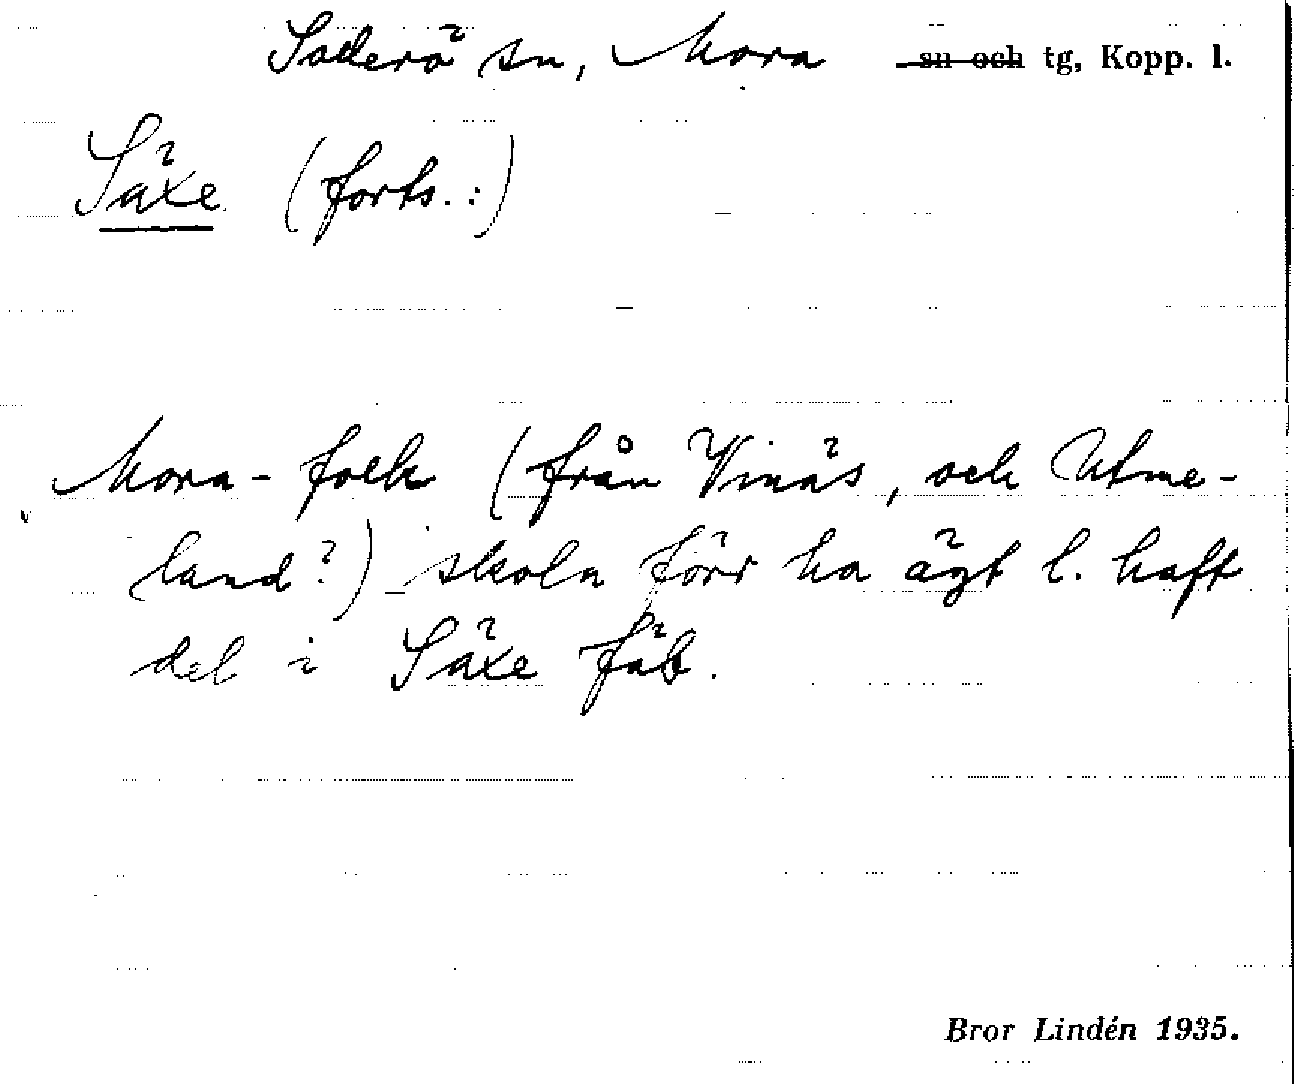 Sollerö sn, Mora sn och tg, Kopp. l.
Säxe (forts.:)
Mora-folk (från Vinäs, och Utme-
land?) skola förr ha ägt l. haft
del i Säxe fäb.
Bror Lindén 1935.